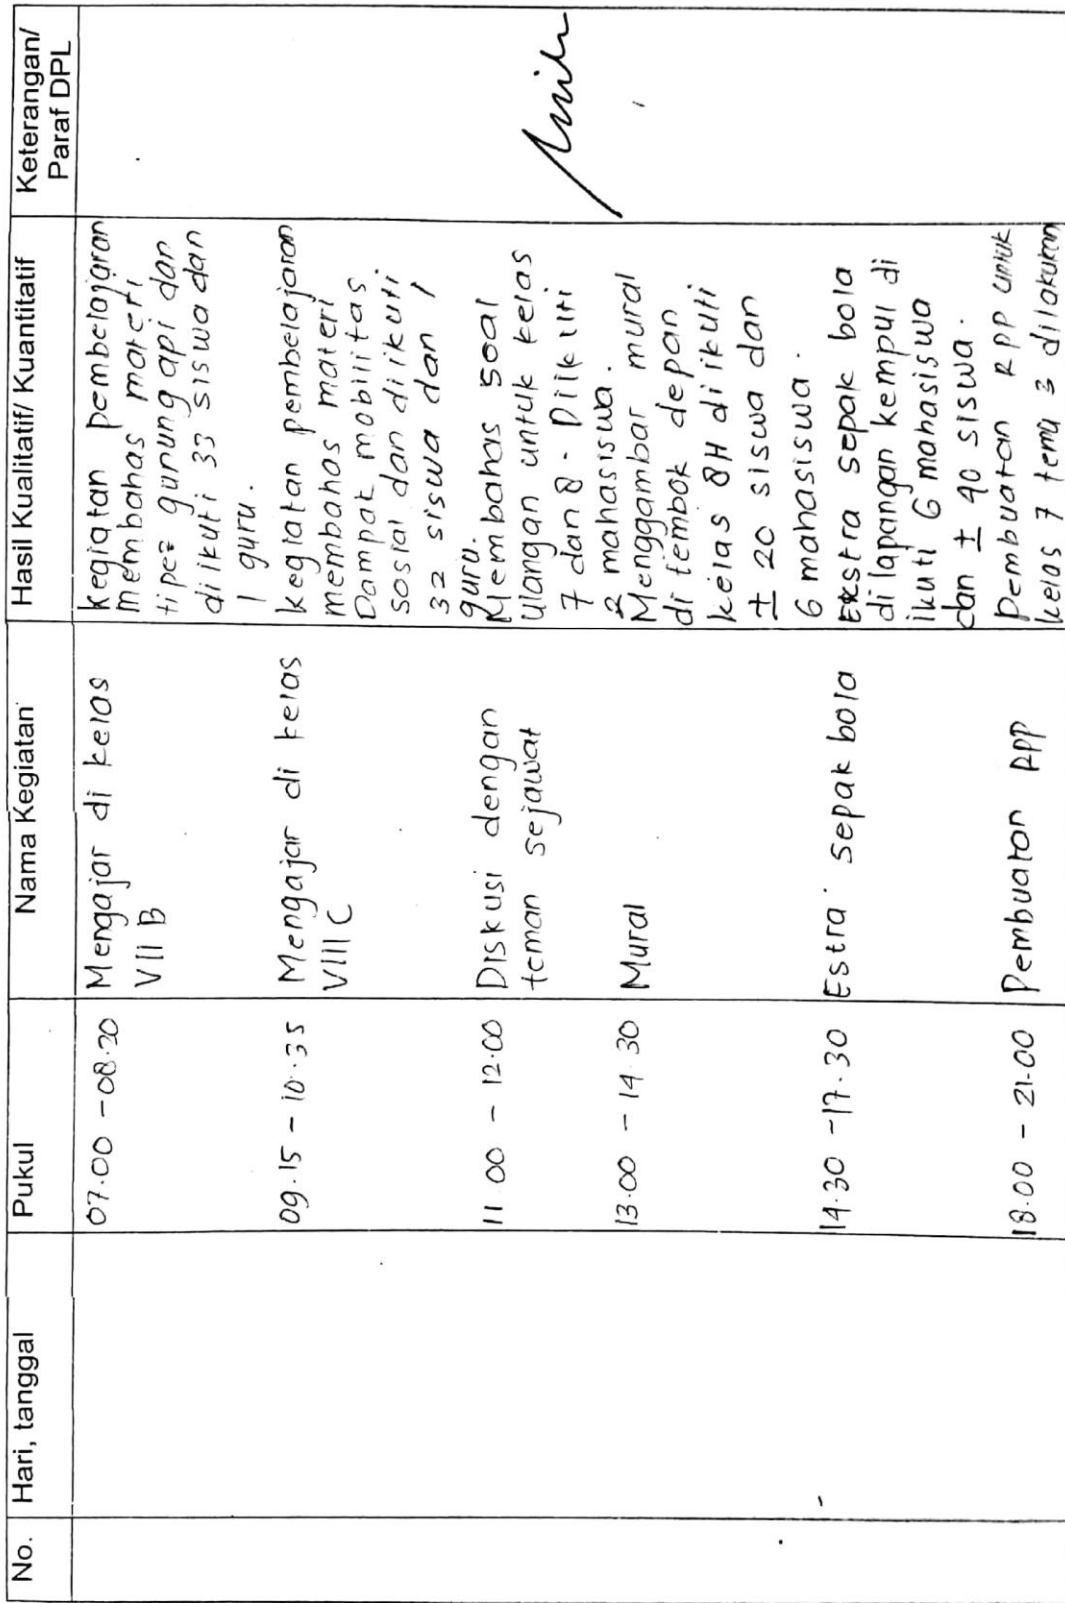 No.
Hari, tanggal
Pukul
Nama Kegiatan
Hasil Kualitatif/ Kuantitatif
Keterangan/
Paraf DPL
07.00 - 08.20
Mengajar di kelas
VII B
kegiatan pembelajaran
membahas materi
tipe2 gunung api dan
di ikuti 33 siswa dan
1 guru.
09.15 - 10.35
Mengajar di kelas
VIII C
kegiatan pembelajaran
membahas materi
Dampak mobilitas
sosial dan di ikuti
32 siswa dan 1
guru.
11.00 - 12.00
Diskusi dengan
teman sejawat
Membahas soal
ulangan untuk kelas
7 dan 8. Diikuti
2 mahasiswa.
13.00 - 14.30
Mural
Menggambar mural
di tembok depan
kelas 8H di ikuti
± 20 siswa dan
6 mahasiswa.
14.30 - 17.30
Estra sepak bola
Ekstra sepak bola
di lapangan kempul di
ikuti 6 mahasiswa
dan ± 40 siswa.
18.00 - 21.00
Pembuatan RPP
Pembuatan RPP untuk
kelas 7 tema 3 dilakukan